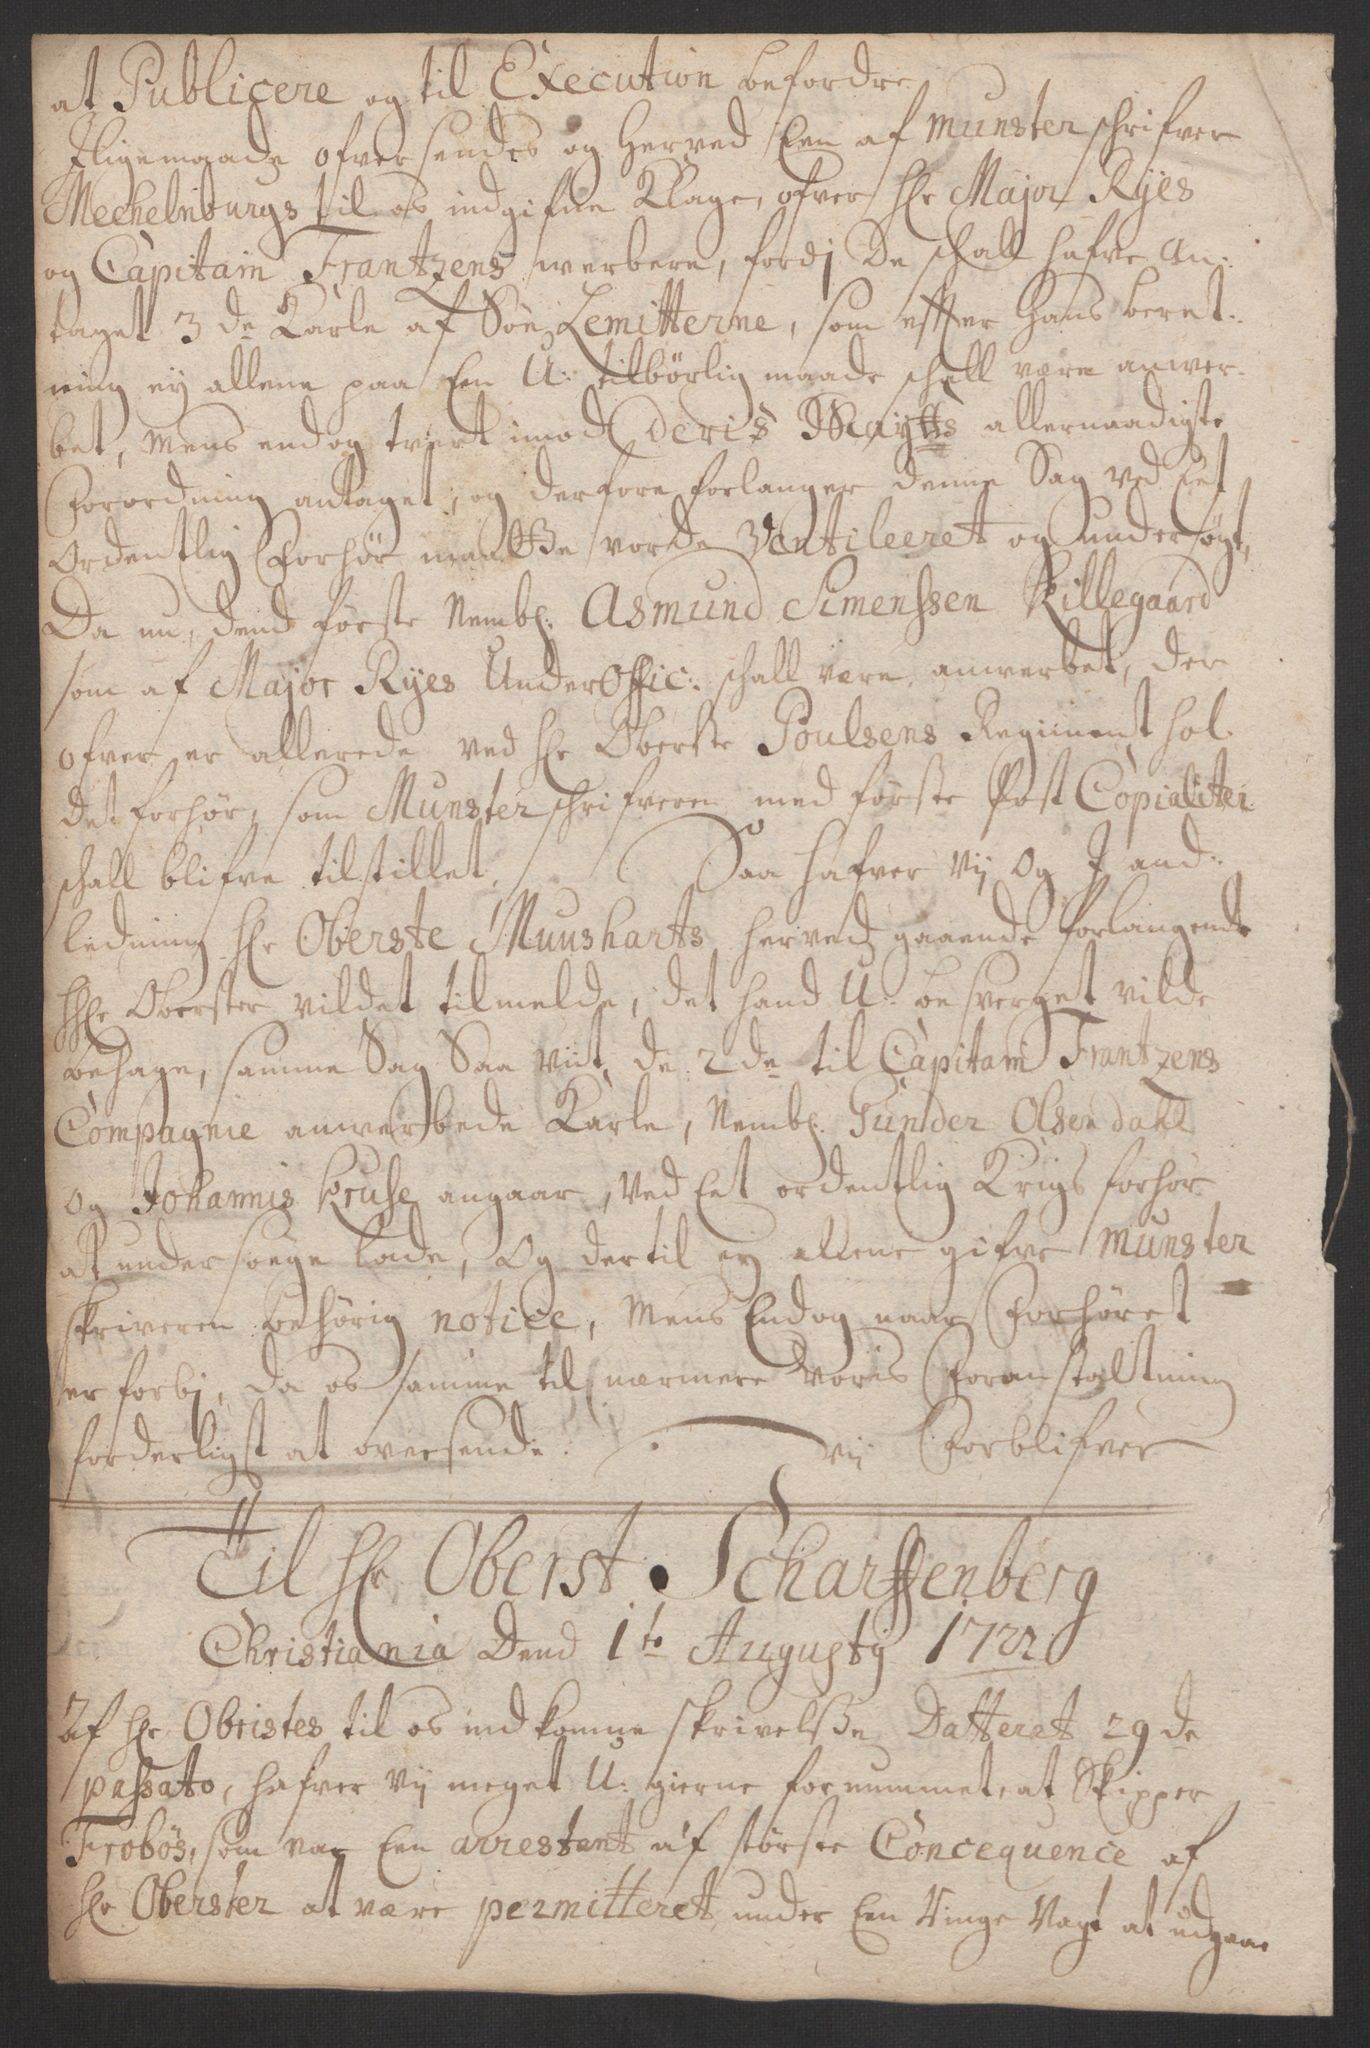 at Publicere og til Execution befordre
Jligemaade ofversendes og herved Een af Munsterschrifver
Mechelnburgs til os indgifne Klage, ofver Hr Major Ryes
og Capitain Frantzens werbere, fordj De schall hafve an:
taget 3 de Karle af Søe Lemitterne, som efter hans beret:
ning ey allene paa Een U: tilbørlig maade schall være anwer-
bet, Mens endog tvert imod Deris Maytts allernaadigste
Forordning antaget, og derfore forlanger denne Sag ved Eet
Ordentlig Forhør maatte vorde Ventileeret og undersøgt,
Da nu, dend første Nembl: Asmund Simenssen Killegaard
som af Major Ryes UnderOffic: schall være anwerbet, der
ofver er allerede ved Hr Oberste Poulsens Regiment hol-
det forhør, som Munsterschrifveren med første Post Copialiter
schall blifve tilstillet. Saa hafver Vij og J and:
ledning Hr Oberste Muusharts herved gaaende forlangende
Hr Oberster vildet tilmelde, det hand U: besverget vilde
behage, samme Sag Saa vit de 2de til Capitain Frantzens
Compagnie anwerbede Karle, Nembl: Gunder Olsen dahl
og Johannis Kruse angaar, Ved Eet ordentlig Krigs forhør
at undersøege lade, Og dertil ey allene gifve Munster
skriveren behørig notice, Mens Endog naar Forhøret
er forbj, da os samme til nærmere Voris Foranstaltning
forderligst at oversende. Vij Forblifver
Til Hr Oberst Scharffenberg
Christiania Dend 1te Augusty 1721
Af Hr Obristes til os indkomne skrivelsse Datteret 29 de
passato, hafver Vij meget U: gierne fornummet, at Skipper
Frobøs, som var Een arrestent af største Concequence af
Hr Oberster at være permitteret under Een ringe Vagt at udgaae